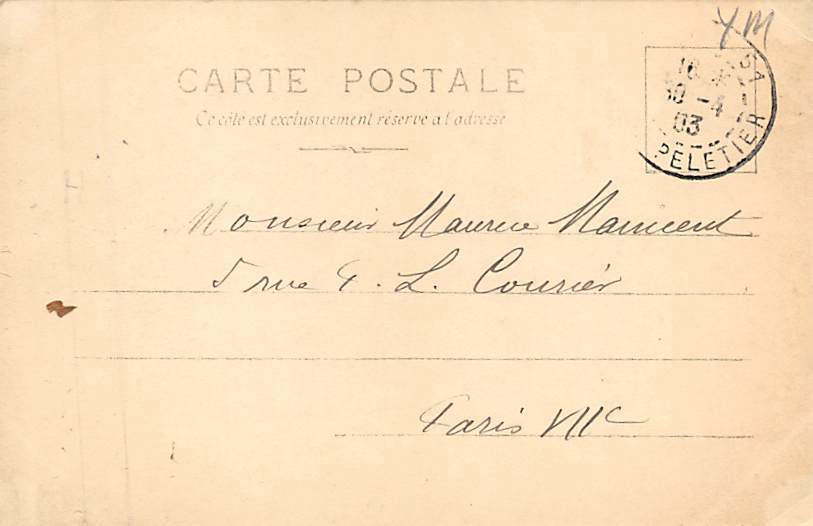 YM
CARTE POSTALE
Ce côté est exclusivement réservé à l'adresse
18
30 -4
03
PELETIER
Monsieur Maurice
5 rue P. L. Courier
Paris VIIe